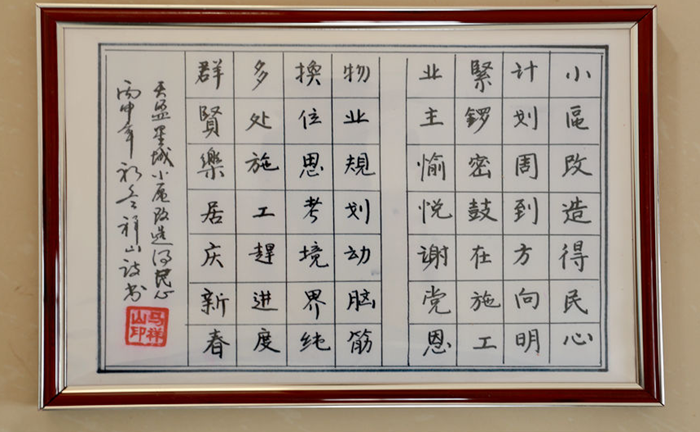 小區改造得民心
计划周到方向明
緊锣密鼓在施工
业主愉悦谢党恩
物业規划动脑筋
換位思考境界纯
多处施工趕进度
群賢樂居庆新春
星城小区改造得民心
丙申年祥山诗书
马祥山印